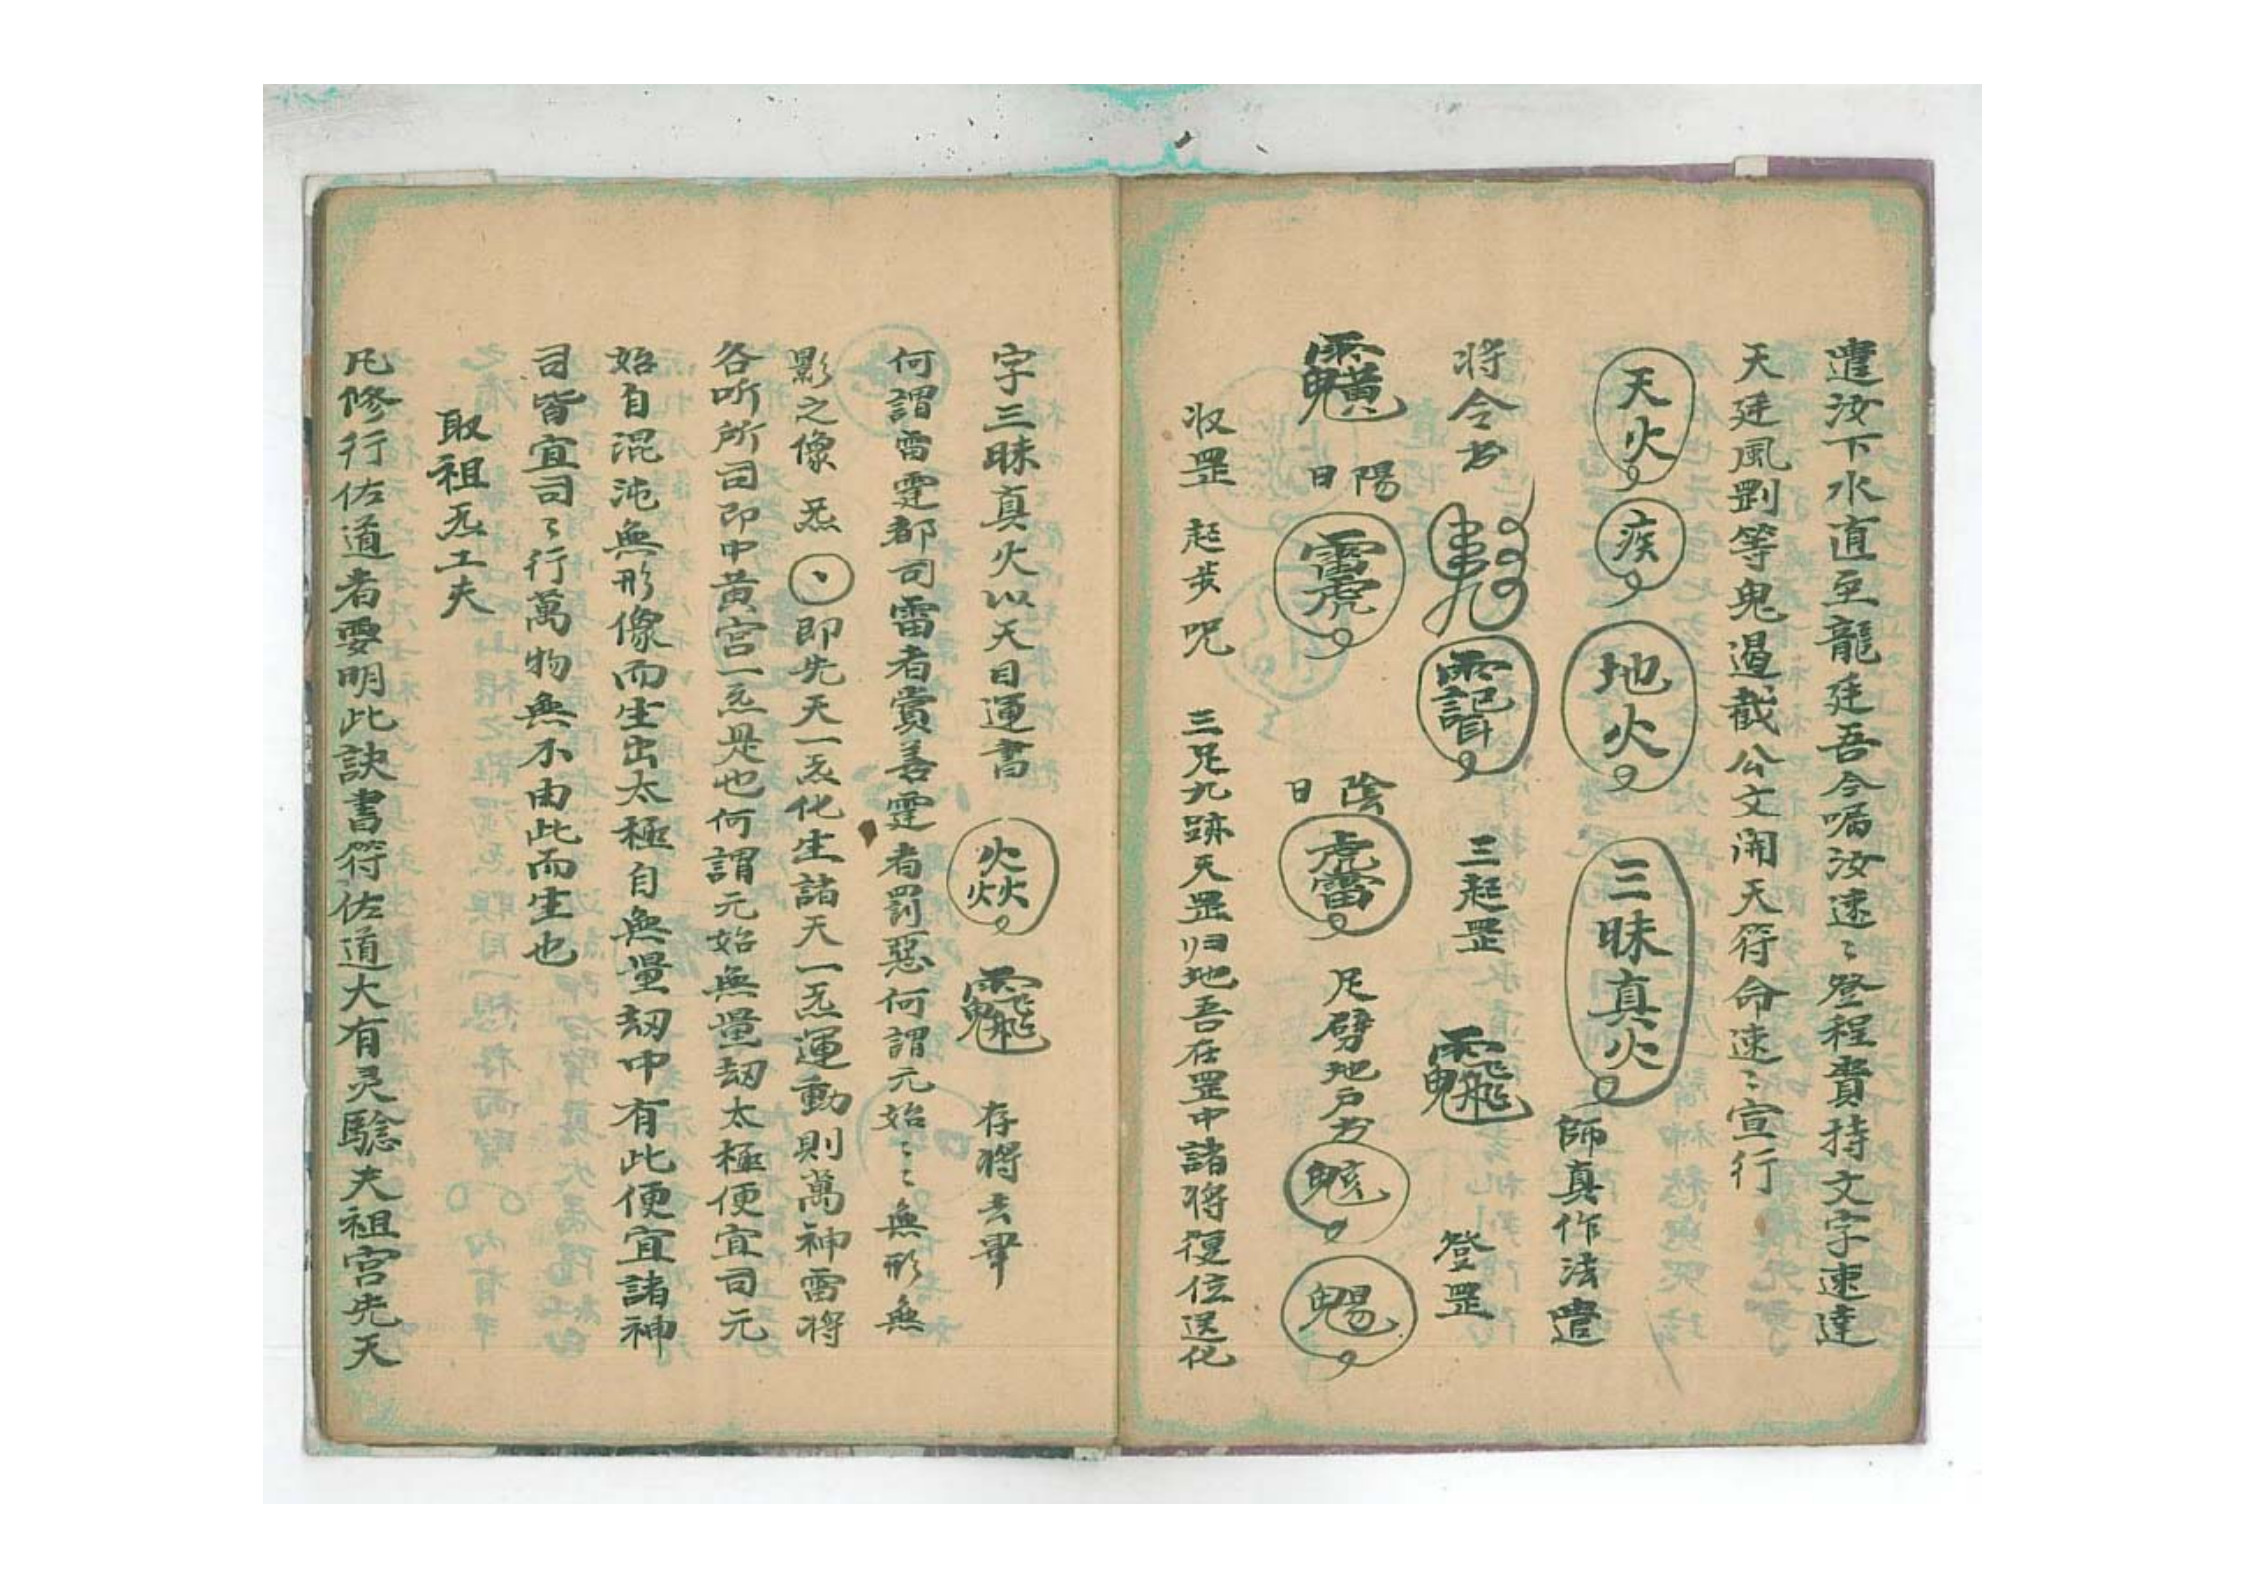 遣汝下水直至龍廷吾今囑汝速〻登程賫持文字速達
天廷風罡等鬼過截公文開天符命速〻宣行
天火 疾 地火 三昧真火 師真作法遣
将令 三起罡 登罡
日陽 日陰 足劈地户
收罡 起步咒 三足九跡天罡归地吾在罡中諸将復位送化
字三昧真火以天目運書 存将去畢
何謂雷霆都司雷者賞善霆者罰惡何謂元始〻〻無形無
影之像炁即先天一炁化生諸天一炁運動則萬神雷将
各听所司即中黄宫一炁是也何謂元始無量劫太極便宜司元
始自混沌無形像而生出太極自無量劫中有此便宜諸神
司皆宜司〻行萬物無不由此而生也
取祖炁工夫
凡修行佐道者要明此訣書符佐道大有灵驗夫祖宫先天